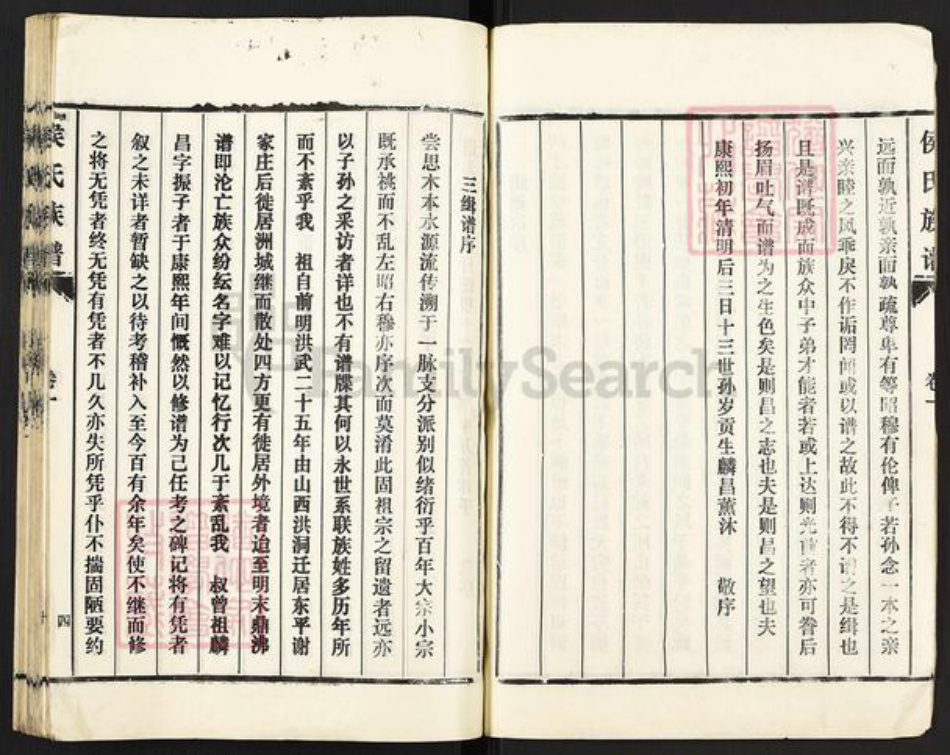 侯氏族谱
卷一
远而孰近孰亲而孰疏尊卑有等昭穆有伦俾子若孙念一本之亲
兴亲睦之风乖戾不作诟罔而或以谱之故此不得不谱之是缉也
且是谱既成而族众中子弟才能者若或上达则光前者亦可誊后
扬眉吐气而谱为之生色矣是则昌之志也夫是则昌之望也夫
康熙初年清明后三日十三世孙岁贡生麟昌薰沐 敬序
三缉谱序
尝思木本水源流传溯于一脉支分派别似绪衍乎百年大宗小宗
既承祧而不乱左昭右穆亦序次而莫淆此固祖宗之留遗者远亦
以子孙之采访者详也不有谱牒其何以永世系联族姓多历年所
而不紊乎我 祖自前明洪武二十五年由山西洪洞迁居东平谢
家庄后徙居洲城继而散处四方更有徙居外境者迨至明末鼎沸
谱即沦亡族众纷纭名字难以记忆行次几于紊乱我 叔曾祖麟
昌字振子者于康熙年间慨然以修谱为己任考之碑记将有凭者
叙之未详者暂缺之以待考稽补入至今百有余年矣使不继而修
之将无凭者终无凭有凭者不几久亦失所凭乎仆不揣固陋要约
侯氏族谱
卷一
四
FamilySearch